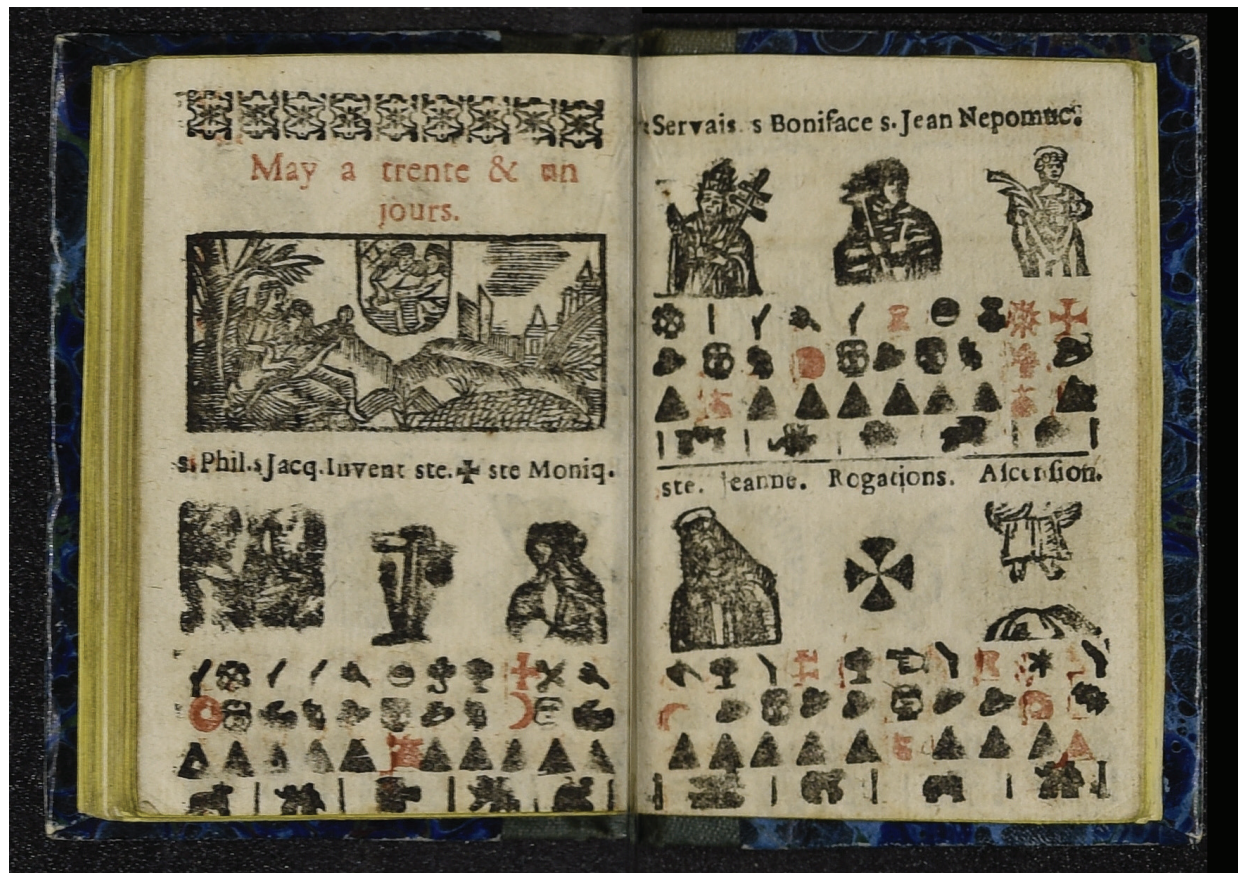 May a trente & un
jours.
s. Phil. s Jacq. Invent ste. ✠ ste Moniq.
s Servais. s Boniface s. Jean Nepomuc.
ste. Jeanne. Rogations. Ascension.